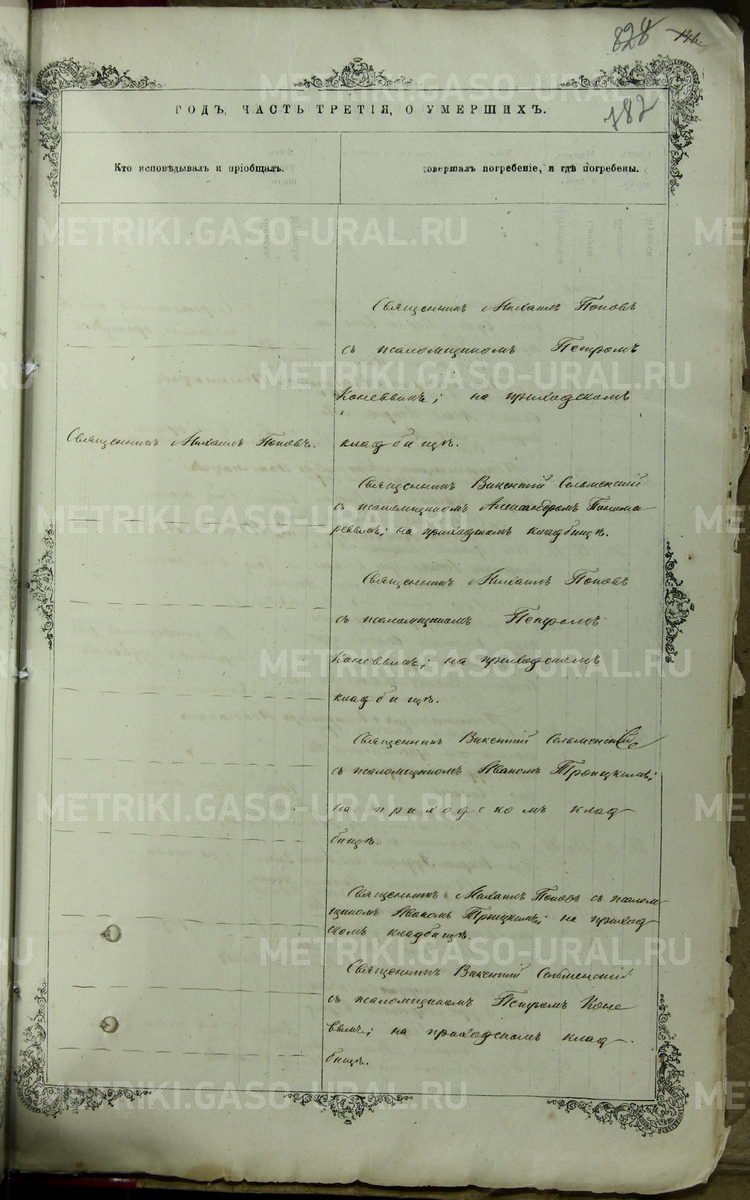 828 146
782
ГОДЪ, ЧАСТЬ ТРЕТІЯ, О УМЕРШИХЪ.
Кто исповѣдывалъ и пріобщалъ.
совершалъ погребеніе, и гдѣ погребены.
Священникъ Михаилъ Поповъ
съ псаломщикомъ Петромъ
Коневымъ; на приходскомъ
кладбищѣ.
Священникъ Михаилъ Поповъ.
Священникъ Викентій Сельменскій
съ псаломщикомъ Александромъ Понома
ревымъ; на приходскомъ кладбищѣ.
Священникъ Михаилъ Поповъ
съ псаломщикомъ Петромъ
Коневымъ; на приходскомъ
кладбищѣ.
Священникъ Викентій Сельменскій
съ псаломщикомъ Иваномъ Троицкимъ;
на приходскомъ клад
бищѣ.
Священникъ Михаилъ Поповъ съ псалом
щикомъ Иваномъ Троицкимъ; на приход
скомъ кладбищѣ.
Священникъ Викентій Сельменскій
съ псаломщикомъ Петромъ Коне
вымъ; на приходскомъ клад
бищѣ.
METRIKI.GASO-URAL.RU